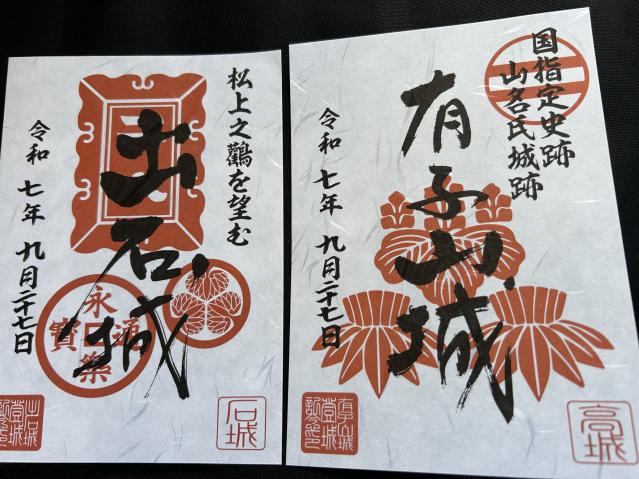 松上之鸛を望む
出石城
令和七年 九月二十七日
永樂通寶
石城
国指定史跡
山名氏城跡
有子山城
令和七年 九月二十七日
高城